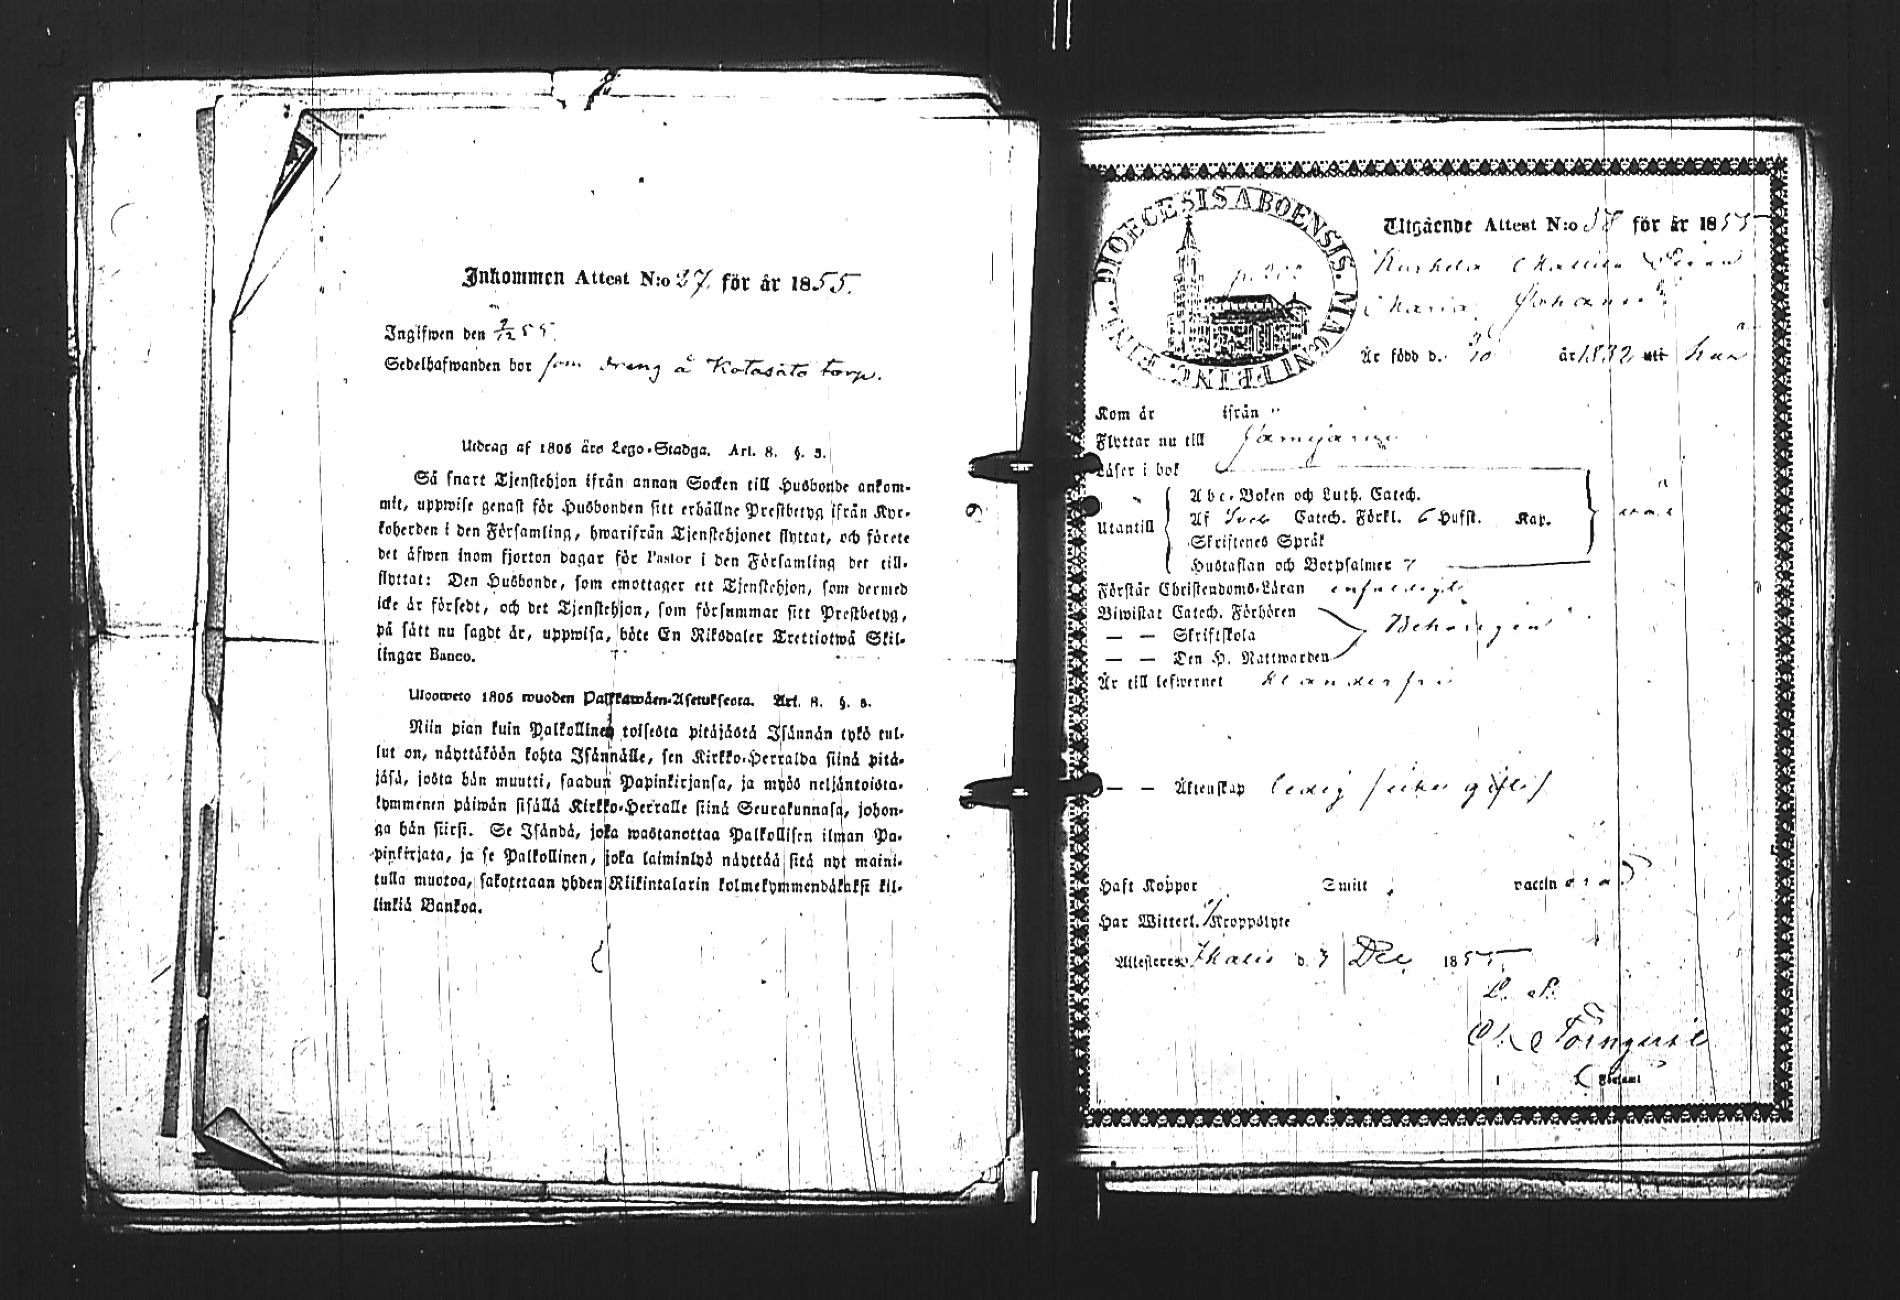 Inkommen Attest N:o 27. för år 1855.
Ingifwen den 9/12 55.
Sedelhafwanden bor som dreng å Kotasato torp.
Utdrag af 1805 års Lego-Stadga. Art. 8. §. 3.
Så snart Tjenstehjon ifrån annan Socken till Husbonde ankom-
mit, uppwise genast för Husbonden sitt erhållne Prestbetyg ifrån Kyr-
koherden i den Församling, hwarifrån Tjenstehjonet flyttat, och förete
det äfwen inom fjorton dagar för Pastor i den Församling det till-
flyttat: Den Husbonde, som emottager ett Tjenstehjon, som dermed
icke är försedt, och det Tjenstehjon, som försummar sitt Prestbetyg,
på sätt nu sagdt är, uppwisa, böte En Riksdaler Trettiotwå Skil-
lingar Banco.
Ulosweto 1805 wuoden Palkkawäen-Asetuksesta. Art. 8. §. 3.
Niin pian kuin Palkollinen toisesta pitäjästä Isännän tykö tul-
lut on, näyttäköön kohta Isännälle, sen Kirkko-Herralda siinä pitä-
jäsä, josta hän muutti, saadun Papinkirjansa, ja myös neljäntoista-
kymmenen päiwän sisällä Kirkko-Herralle siinä Seurakunnasa, johon-
ga hän siirsi. Se Isändä, joka wastanottaa Palkollisen ilman Pa-
pinkirjata, ja se Palkollinen, joka laiminlyö näyttää sitä nyt maini-
tulla muotoa, sakotetaan yhden Riikintalarin kolmekymmendäkaksi kil-
linkiä Bankoa.
DIOECESIS ABOENSIS. MAGNI PRINC. FINL.
Utgående Attest N:o 58 för år 1855
Maria Johans
Är född d. 3/10 år 1832 att han
Kom år ifrån "
Flyttar nu till
Läser i bok
Utantill
Abc-Boken och Luth. Catech.
Af Catech. Förkl. 6 Hufst. Kap.
Skriftenes Språk
Hustaflan och Botpsalmer 7
Förstår Christendoms-Läran enfaldigt
Biwistat Catech. Förhören
— — Skriftskola
— — Den H. Nattwarden
Är till lefwernet klanderfri
— — Äktenskap ledig från giftes
Haft Koppor Smitt vaccin
Har Witterl. Kroppslyte
Attesteras Ikalis d. 3 Dec 1855.
L. S.
Törnqvist
i Församl